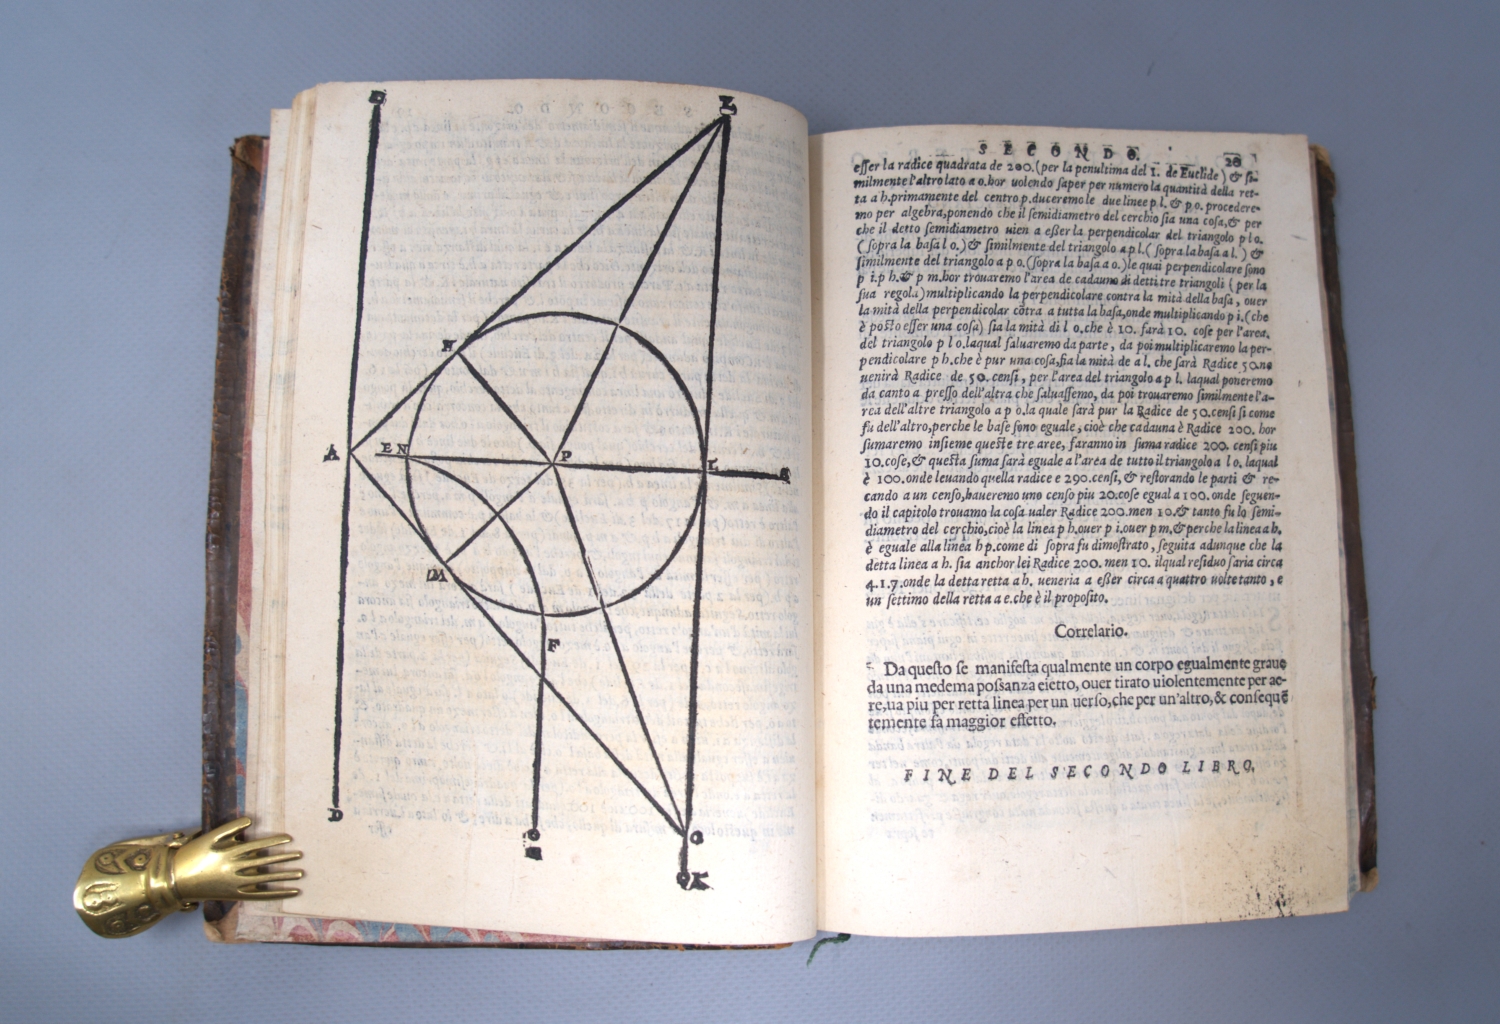 L
H
A
E N
P
L
M
F
D
K
S E C O N D O.
20
esser la radice quadrata de 200. (per la penultima del 1. de Euclide) & si-
milmente l'altro lato a o. hor uolendo saper per numero la quantità della ret-
ta a h. primamente del centro p. duceremo le due linee p l. & p o. procedere-
mo per algebra, ponendo che il semidiametro del cerchio sia una cosa, & per
che il detto semidiametro uien a esser la perpendicolar del triangolo p l o.
(sopra la basa l o.) & similmente del triangolo a p l. (sopra la basa a l.) &
similmente del triangolo a p o. (sopra la basa a o.) le quai perpendicolare sono
p i. p h. & p m. hor trouaremo l'area de cadauno di detti tre triangoli (per la
sua regola) multiplicando la perpendicolare contra la mità della basa, ouer
la mità della perpendicolar cōtra a tutta la basa, onde multiplicando p i. (che
è posto esser una cosa) sia la mità di l o. che è 10. farà 10. cose per l'area.
del triangolo p l o. laqual saluaremo da parte, da poi multiplicaremo la per-
pendicolare p h. che è pur una cosa, fia la mità de a l. che sarà Radice 50. ne
uenirà Radice de 50. censi, per l'area del triangolo a p l. laqual poneremo
da canto a presso dell'altra che saluassemo, da poi trouaremo similmente l'a-
rea dell'altre triangolo a p o. la quale sarà pur la Radice de 50. censi si come
fu dell'altro, perche le base sono eguale, cioè che cadauna è Radice 200. hor
sumaremo insieme queste tre aree, faranno in suma radice 200. censi piu
10. cose, & questa suma sarà eguale a l'area de tutto il triangolo a l o. laqual
è 100. onde leuando quella radice e 290. censi, & restorando le parti & re-
cando a un censo, haueremo uno censo piu 20. cose egual a 100. onde seguen-
do il capitolo trouamo la cosa ualer Radice 200. men 10. & tanto fu lo semi-
diametro del cerchio, cioè la linea p h. ouer p i. ouer p m. & perche la linea a h.
è eguale alla linea h p. come di sopra fu dimostrato, seguita adunque che la
detta linea a h. sia anchor lei Radice 200. men 10. ilqual residuo saria circa
4.1.7. onde la detta retta a h. ueneria a esser circa a quattro uolte tanto, e
un settimo della retta a e. che è il proposito.
Correlario.
Da questo se manifesta qualmente un corpo egualmente graue
da una medema possanza eietto, ouer tirato uiolentemente per ae-
re, ua piu per retta linea per un uerso, che per un'altro, & consequē
temente fa maggior effetto.
FINE DEL SECONDO LIBRO.